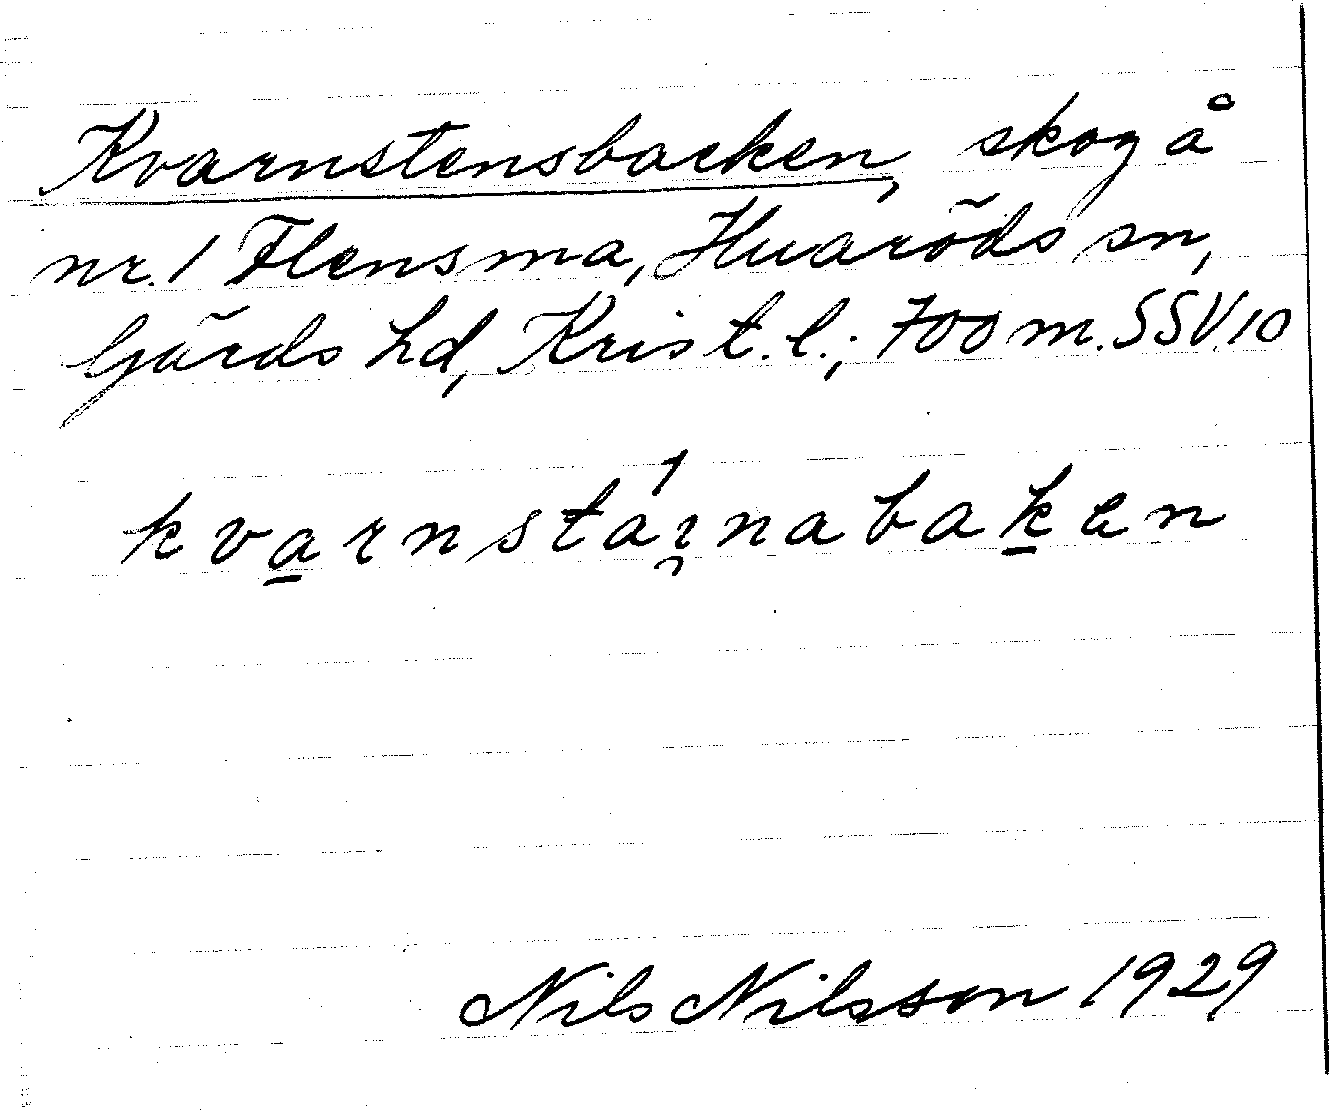 Kvarnstensbacken, skog å
nr. 1 Flensma, Huaröds sn,
Gärds hd, Krist. l.; 700 m. SSV. 10
kvarnstáı̯nabaken
Nils Nilsson 1929